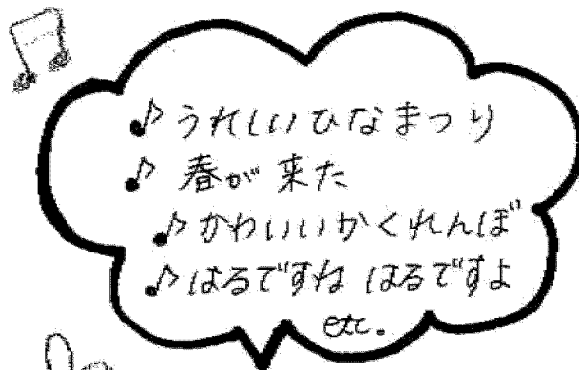 ♪うれしいひなまつり
♪春が来た
♪かわいいかくれんぼ
♪はるですね はるですよ
etc.